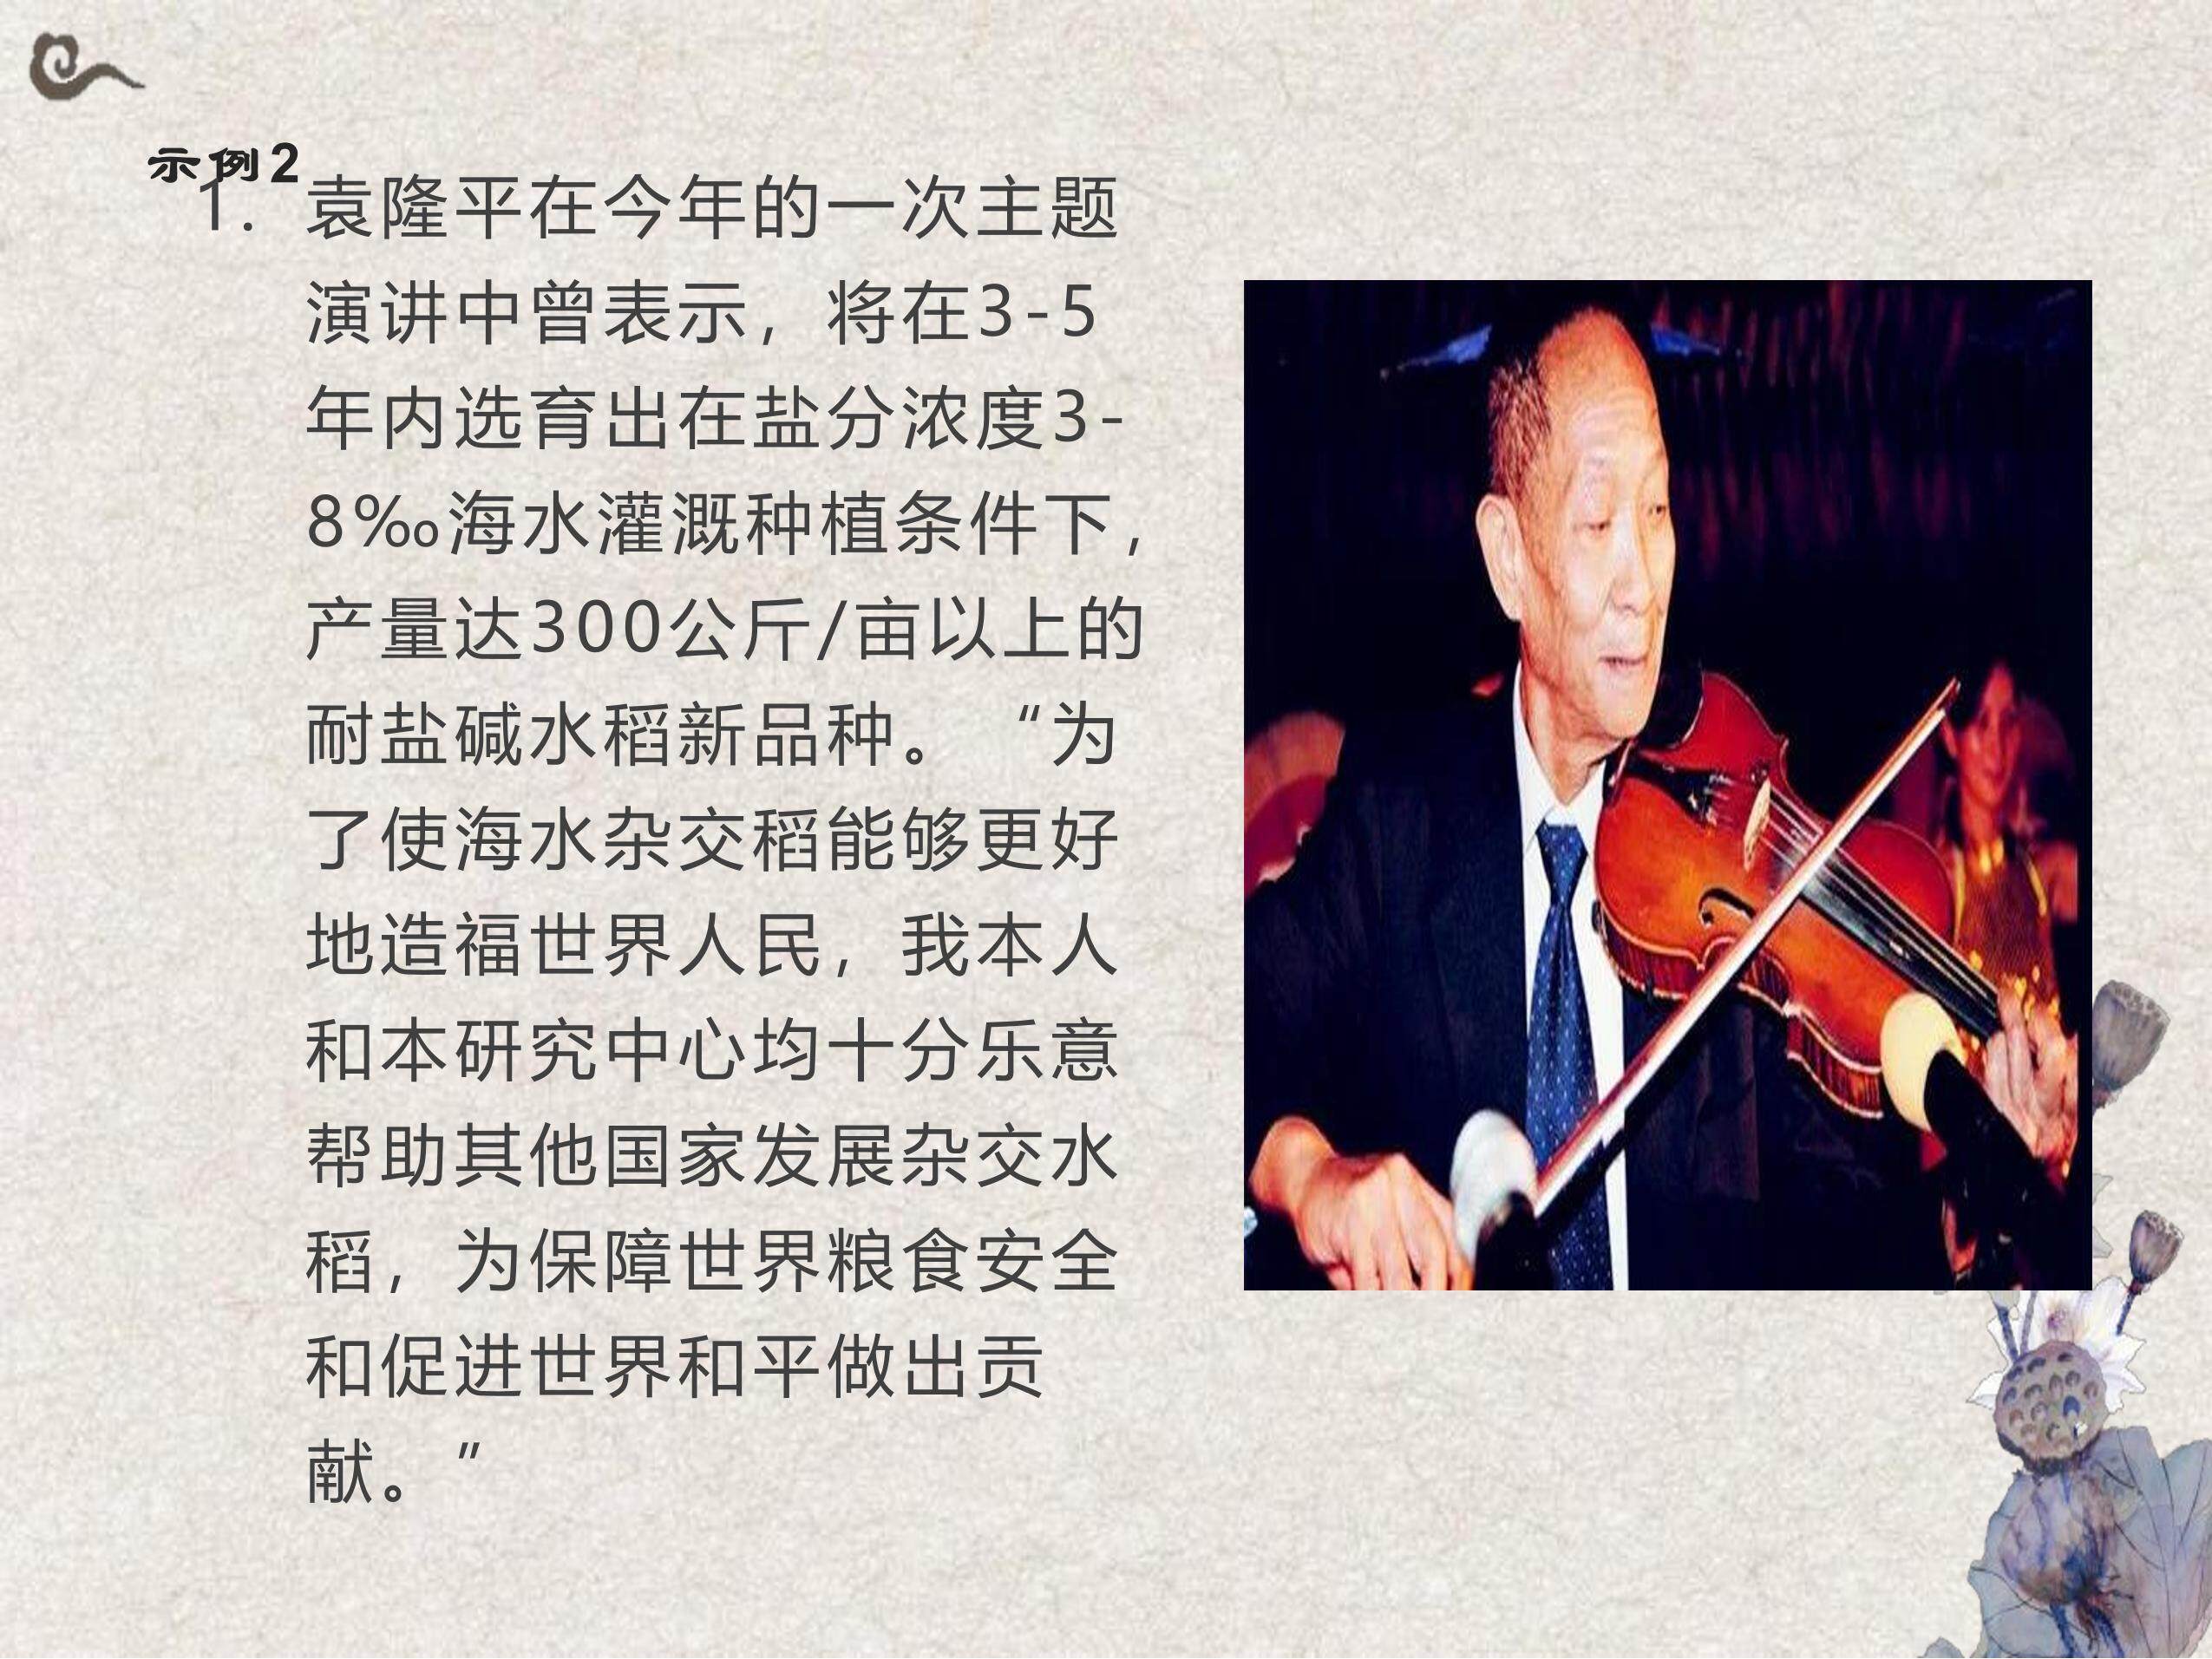 示例2
1. 袁隆平在今年的一次主题
演讲中曾表示，将在3-5
年内选育出在盐分浓度3-
8‰海水灌溉种植条件下，
产量达300公斤/亩以上的
耐盐碱水稻新品种。“为
了使海水杂交稻能够更好
地造福世界人民，我本人
和本研究中心均十分乐意
帮助其他国家发展杂交水
稻，为保障世界粮食安全
和促进世界和平做出贡
献。”